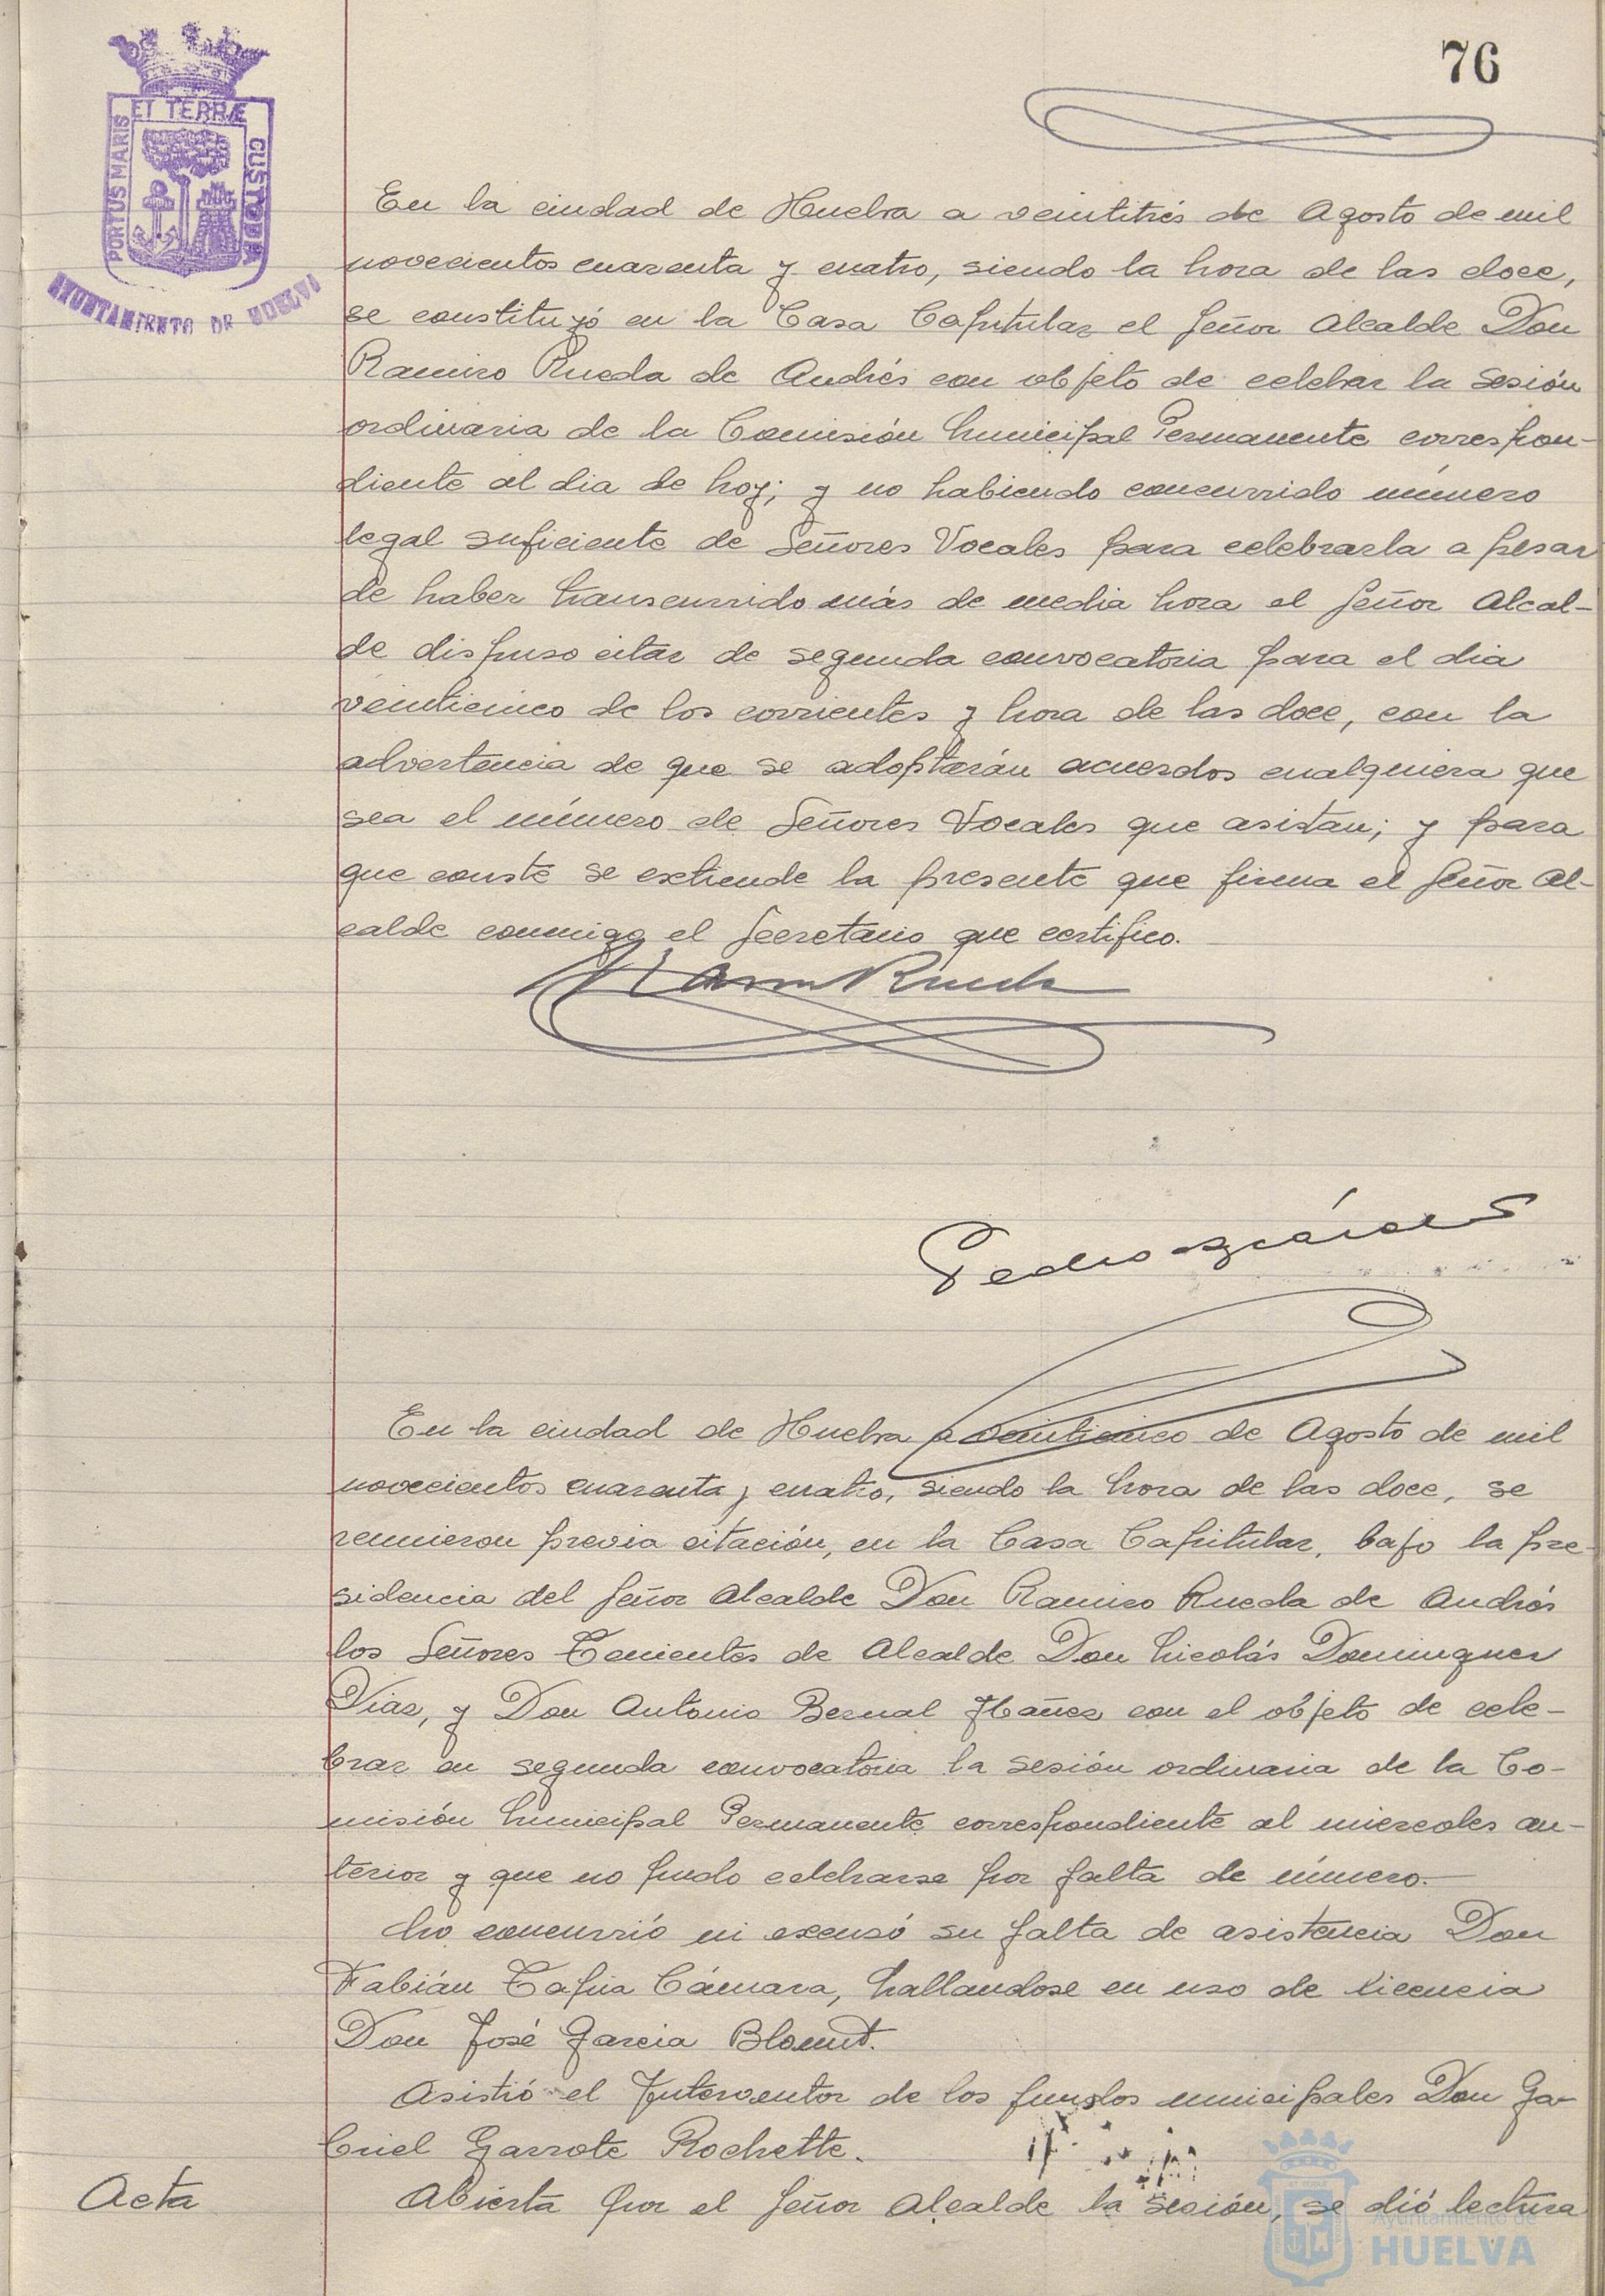 76
PORTUS MARIS
ET TERRÆ
CUSTODIA
AYUNTAMIENTO DE HUELVA
En la ciudad de Huelva a veintitrés de Agosto de mil
novecientos cuarenta y cuatro, siendo la hora de las doce,
se constituyó en la Casa Capitular el Señor Alcalde Don
Ramiro Rueda de Andrés con objeto de celebrar la sesión
ordinaria de la Comisión Municipal Permanente correspon-
diente al dia de hoy; y no habiendo concurrido número
legal suficiente de Señores Vocales para celebrarla a pesar
de haber transcurrido más de media hora el Señor Alcal-
de dispuso citar de segunda convocatoria para el dia
veinticinco de los corrientes y hora de las doce, con la
advertencia de que se adoptarán acuerdos cualquiera que
sea el número de Señores Vocales que asistan; y para
que conste se extiende la presente que firma el Señor Al-
calde conmigo el Secretario que certifico.
Ram Rueda
Pedro
En la ciudad de Huelva a veinticinco de Agosto de mil
novecientos cuarenta y cuatro, siendo la hora de las doce, se
reunieron previa citación, en la Casa Capitular, bajo la pre-
sidencia del Señor Alcalde Don Ramiro Rueda de Andrés
los Señores Tenientes de Alcalde Don Nicolás Dominguez
Diaz, y Don Antonio Bernal Ibañez con el objeto de cele-
brar en segunda convocatoria la sesión ordinaria de la Co-
misión Municipal Permanente correspondiente al miercoles an-
terior y que no pudo celebrarse por falta de número.-
No concurrió ni excusó su falta de asistencia Don
Fabián Tapia Cámara, hallandose en uso de licencia
Don José Garcia Blomut.
Asistió el Interventor de los fondos municipales Don Ga-
briel Garrote Rochette.
Acta
Abierta por el Señor Alcalde la sesión, se dió lectura
Ayuntamiento de
HUELVA